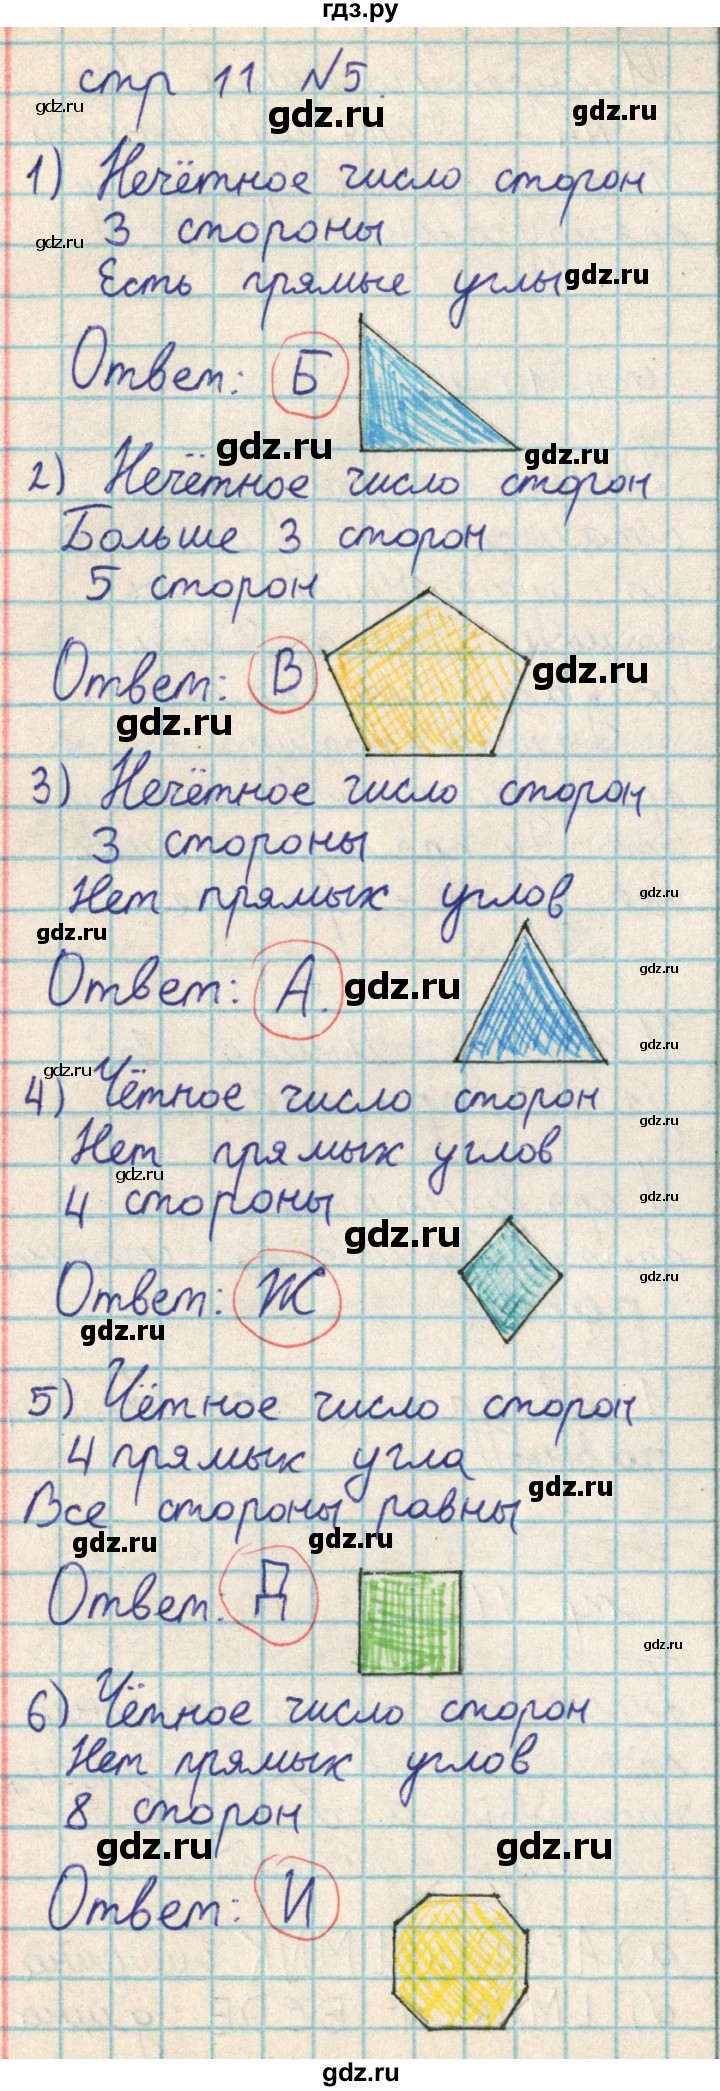 гдз.ру
стр 11 №5.
gdz.ru
gdz.ru
gdz.ru
1) Нечётное число сторон
3 стороны
gdz.ru
Есть прямые углы
gdz.ru
Ответ: Б
gdz.ru
gdz.ru
2) Нечётное число сторон
Больше 3 сторон
5 сторон
Ответ: В
gdz.ru
gdz.ru
3) Нечётное число сторон
3 стороны
Нет прямых углов
gdz.ru
gdz.ru
Ответ: А.
gdz.ru
gdz.ru
gdz.ru
gdz.ru
4) Чётное число сторон
gdz.ru
Нет прямых углов
gdz.ru
4 стороны
gdz.ru
gdz.ru
Ответ: Ж
gdz.ru
gdz.ru
5) Чётное число сторон
4 прямых угла
gdz.ru
Все стороны равны
gdz.ru
gdz.ru
Ответ: Д
gdz.ru
6) Чётное число сторон
Нет прямых углов
8 сторон
gdz.ru
gdz.ru
Ответ: И
gdz.ru